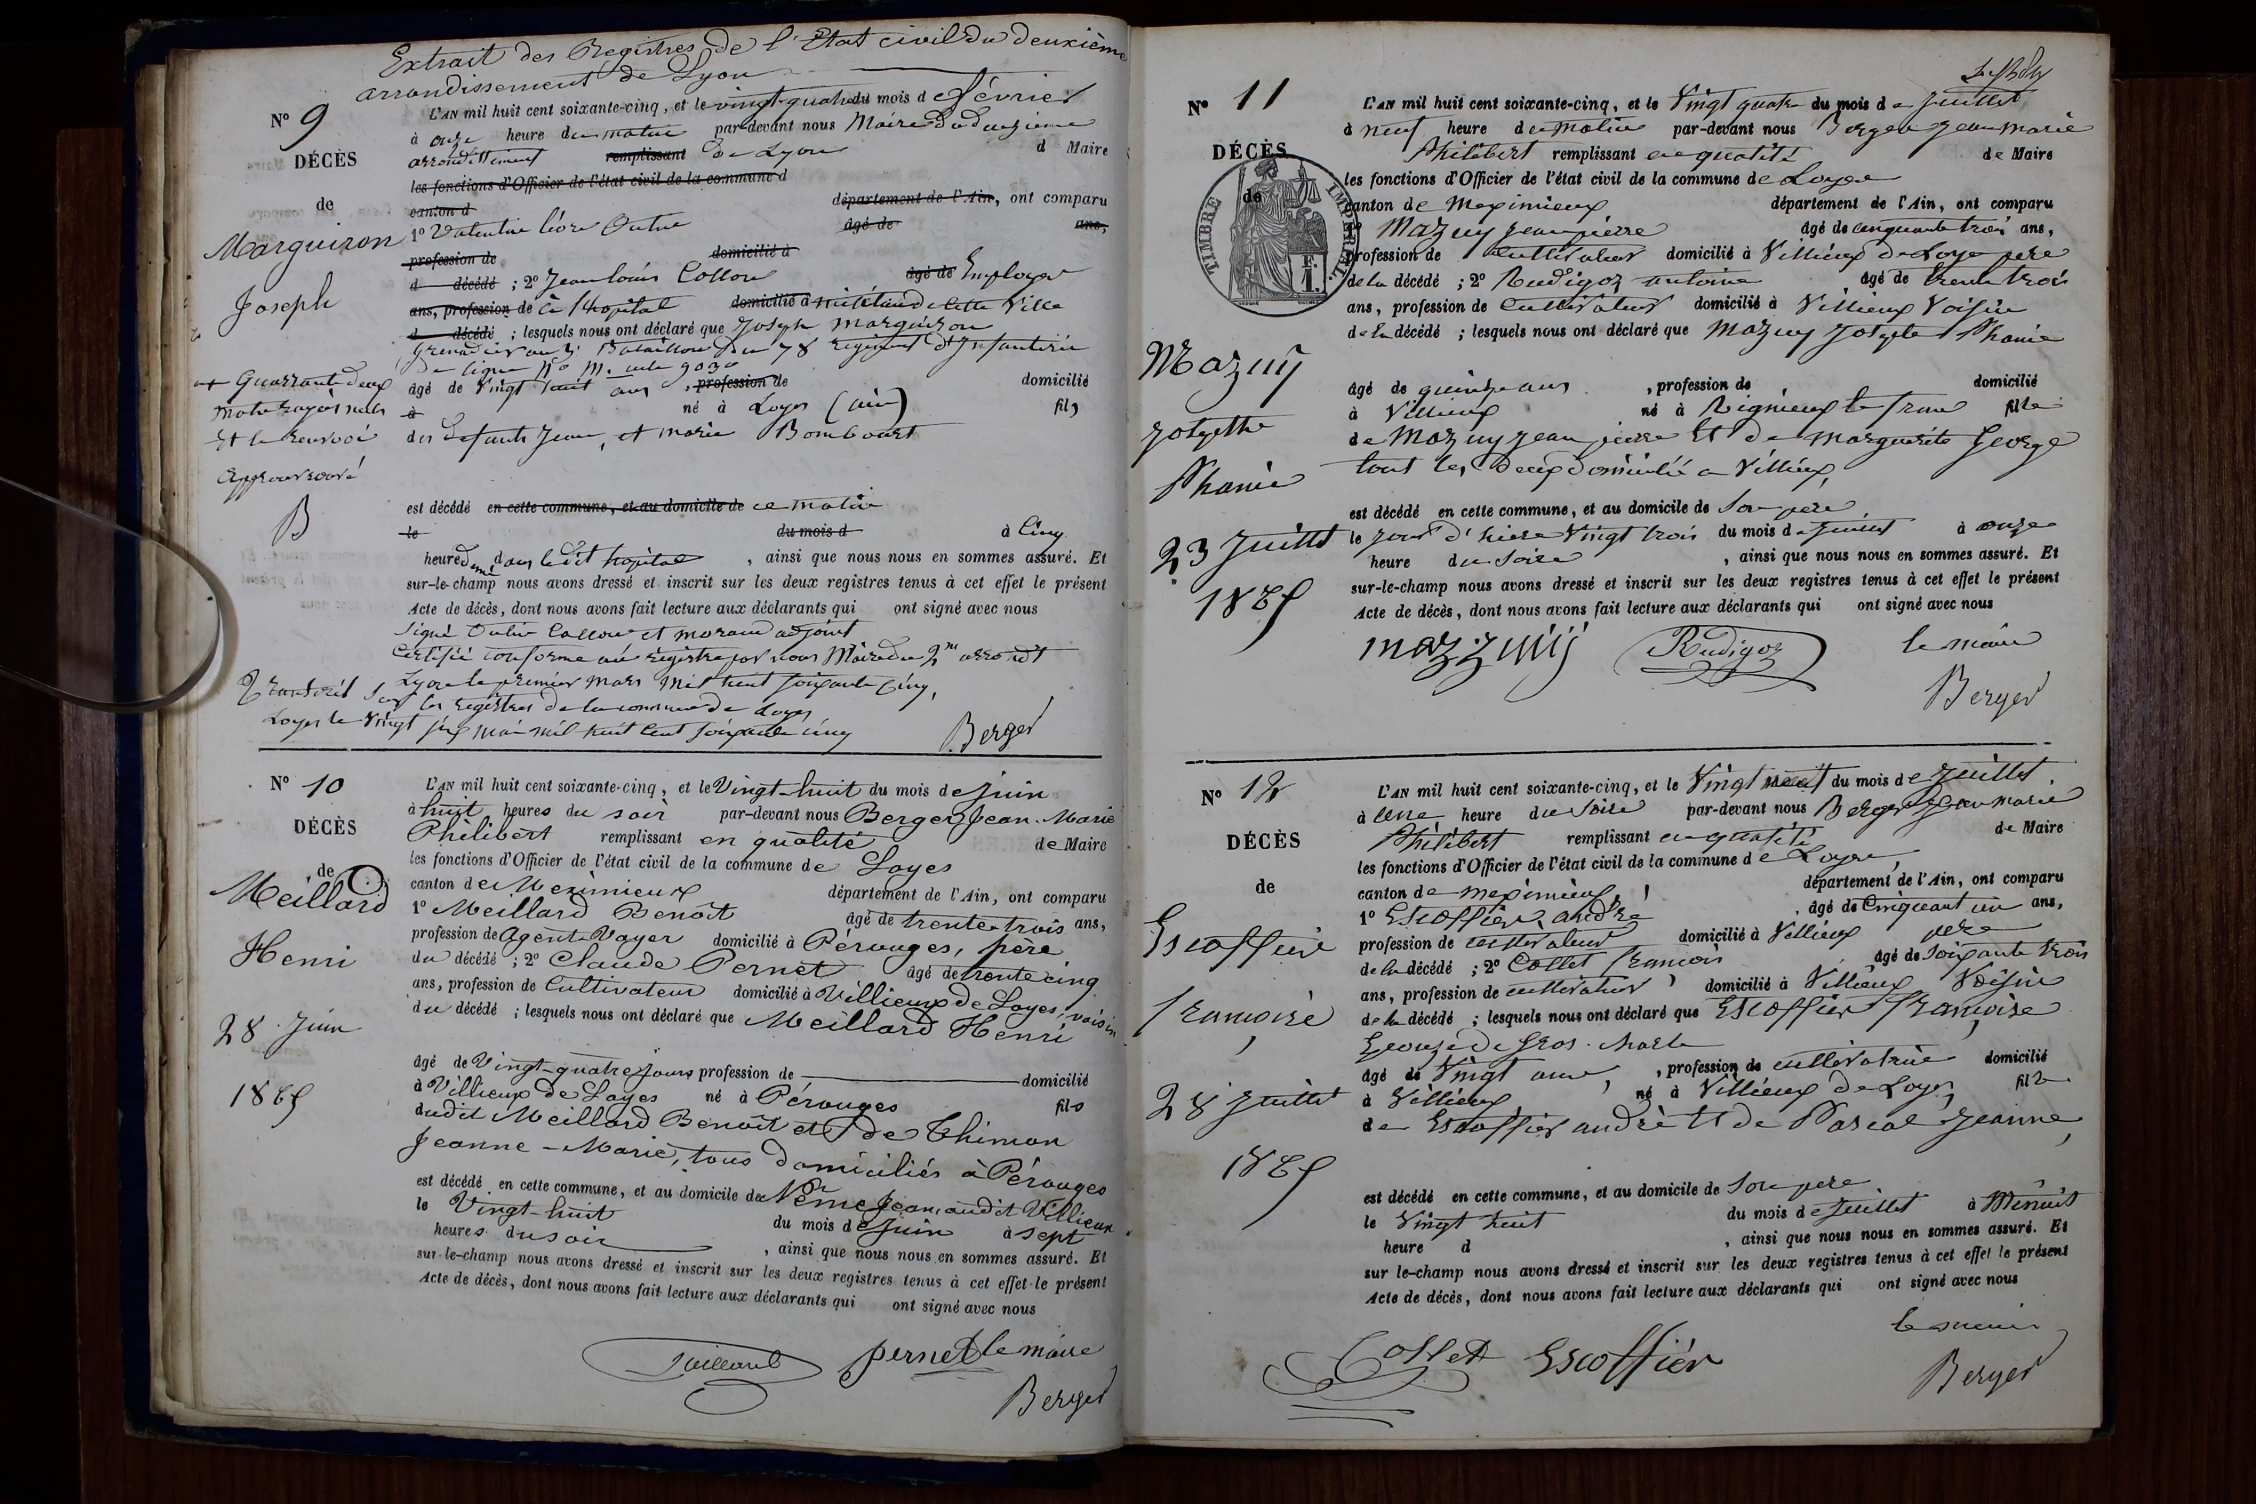 Extrait des Registres de l'Etat civil du deuxième
arrondissement de Lyon
N° 9
DÉCÈS
de
Marguiron
Joseph
Quarante deux
mots rayés nuls
Et le renvoi
Approuvé
B
L'AN mil huit cent soixante-cinq, et le vingt-quatre du mois de février
à onze heure du matin par-devant nous Maire du deuxième
arrondissement remplissant de Lyon d Maire
les fonctions d'Officier de l'état civil de la commune d
canton d département de l'Ain, ont comparu
1° Valentin agé de ans,
profession de domicilié à
d décédé ; 2° Jean louis Collon agé de Employés
ans, profession de à l'hopital domicilié à militaire de cette Ville
d décédé ; lesquels nous ont déclaré que Joseph Marguiron
Grenadier au 3e Bataillon du 78 regiment d'Infanterie
de ligne N° Mcule 9030
agé de Vingt huit ans, profession de domicilié
à né à Loyes (ain) fils
des defunts Jean, et marie Bombourt
est décédé en cette commune, et au domicile de ce matin
le du mois d à Cinq
heure dans ledit hopital, ainsi que nous nous en sommes assuré. Et
sur-le-champ nous avons dressé et inscrit sur les deux registres tenus à cet effet le présent
Acte de décès, dont nous avons fait lecture aux déclarants qui ont signé avec nous
Signé Collon et morand adjoint
Certifié conforme au registre par nous Maire du 2me arrondt
Lyon le premier mars mil huit soixante cinq,
Transcrit sur les registres de la commune de Loyes
Loyes le Vingt six mai mil huit cent soixante cinq
Berger
N° 10
DÉCÈS
de
Meillard
Henri
28 Juin
1865
L'AN mil huit cent soixante-cinq, et le Vingt-huit du mois de Juin
à huit heures du soir par-devant nous Berger Jean-Marie
Philibert remplissant en qualité de Maire
les fonctions d'Officier de l'état civil de la commune de Loyes
canton de Meximieux département de l'Ain, ont comparu
1° Meillard Benoît agé de trente-trois ans,
profession de Agent-Voyer domicilié à Pérouges, père
du décédé ; 2° Claude Pernet agé de trente cinq
ans, profession de Cultivateur domicilié à Villieux de Loyes, voisin
du décédé ; lesquels nous ont déclaré que Meillard Henri
agé de Vingt-quatre jours profession de domicilié
à Villieux de Loyes né à Pérouges fils
dudit Meillard Benoît et de Thimon
Jeanne-Marie, tous domiciliés à Pérouges
est décédé en cette commune, et au domicile de Jean, audit Villieux
le Vingt-huit du mois de Juin à sept
heures du soir, ainsi que nous nous en sommes assuré. Et
sur-le-champ nous avons dressé et inscrit sur les deux registres tenus à cet effet le présent
Acte de décès, dont nous avons fait lecture aux déclarants qui ont signé avec nous
pernet le maire
Berger
N° 11
DÉCÈS
de
TIMBRE IMPÉRIAL
Mazuy
Josephe
Phanie
23 Juillet
1865
L'AN mil huit cent soixante-cinq, et le Vingt quatre du mois de Juillet
à neuf heure du matin par-devant nous Berger Jean marie
Philibert remplissant en qualité de Maire
les fonctions d'Officier de l'état civil de la commune de Loyes
canton de Meximieux département de l'Ain, ont comparu
1° Mazuy Jean pierre agé de cinquante trois ans,
profession de Cultivateur domicilié à Villieux de Loye pere
de la décédé ; 2° Rudigoz antoine agé de trente trois
ans, profession de Cultivateur domicilié à Villieux Voisin
de la décédé ; lesquels nous ont déclaré que Mazuy Josephe Phanie
agé de quinze ans, profession de domicilié
à Villieux né à Rignieux le franc fille
de Mazuy Jean pierre Et de marguerite George
tout les deux domicilié a Villieux,
est décédé en cette commune, et au domicile de Son père
le jour d'hiere Vingt trois du mois de Juillet à onze
heure du Soire, ainsi que nous nous en sommes assuré. Et
sur-le-champ nous avons dressé et inscrit sur les deux registres tenus à cet effet le présent
Acte de décès, dont nous avons fait lecture aux déclarants qui ont signé avec nous
Rudigoz le maire
Berger
N° 12
DÉCÈS
de
Escoffier
françoise
28 Juillet
1865
L'AN mil huit cent soixante-cinq, et le Vingt neuf du mois de Juillet
à une heure du Soire par-devant nous Berger Jean marie
Philibert remplissant en qualité de Maire
les fonctions d'Officier de l'état civil de la commune de Loyes,
canton de Meximieux département de l'Ain, ont comparu
1° Escoffier, andré agé de Cinquant un ans,
profession de cultivateur domicilié à Villieux pere
de la décédé ; 2° Collet francois agé de Soixante trois
ans, profession de cultivateur domicilié à Villieux Voisin
de la décédé ; lesquels nous ont déclaré que Escoffier françoise
Epouse de Gros
agé de Vingt ans, profession de cultivatrice domicilié
à Villieux né à Villieux de Loyes, fille
de Escoffier andrè Et de Pascal Jeanne,
est décédé en cette commune, et au domicile de Son pere
le Vingt huit du mois de Juillet à Minuit
heure d, ainsi que nous nous en sommes assuré. Et
sur le-champ nous avons dressé et inscrit sur les deux registres tenus à cet effet le présent
Acte de décès, dont nous avons fait lecture aux déclarants qui ont signé avec nous
Collet Escoffiér le maire
Berger